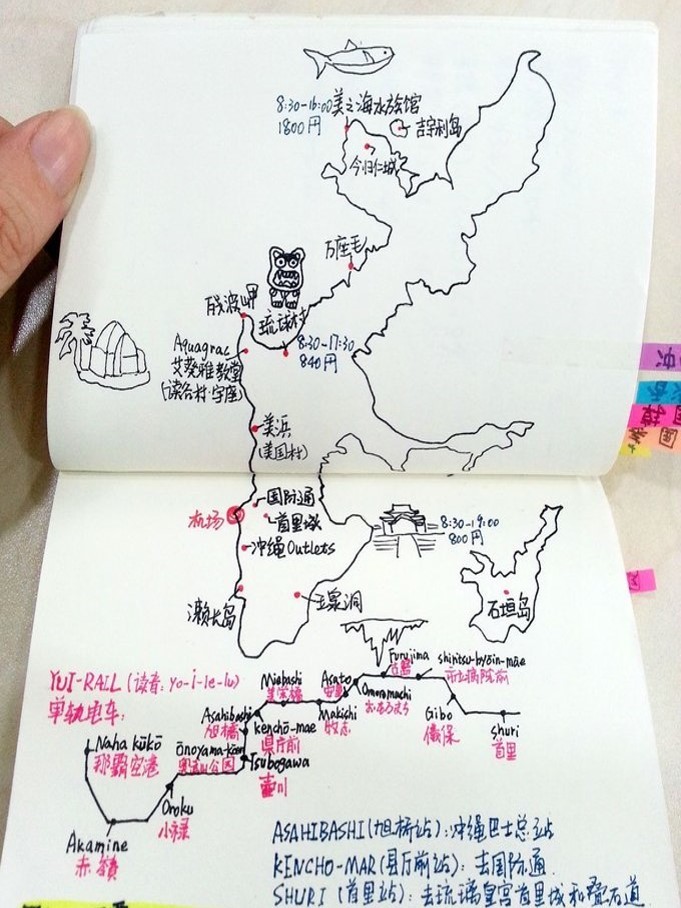 8:30-16:00美之海水族馆
1800円
古宇利岛
今归仁城
万座毛
残波岬
琉球村
8:30-17:30
840円
Aquagrac
艾葵雅教堂
(读谷村·宇座)
美浜
(美国村)
国际通
机场
首里城
8:30-19:00
800円
冲绳Outlets
濑长岛
玉泉洞
石垣岛
YUI-RAIL (读者: yo-i-le-lu)
单轨电车:
Furujima
古島
shiritsu-byōin-mae
市立病院前
Miebashi
美栄橋
Asato
安里
Omoromachi
おもろまち
Asahibashi
旭橋
Makishi
牧志
Gibo
儀保
shuri
首里
kenchō-mae
県庁前
Naha kūkō
那霸空港
ōnoyama-kōen
奥武山公园
Tsubogawa
壷川
Oroku
小禄
Akamine
赤嶺
ASAHIBASHI(旭桥站):冲绳巴士总站
KENCHO-MAR(县厅前站): 去国际通
SHURI (首里站): 去琉璃皇宫首里城和叠石道